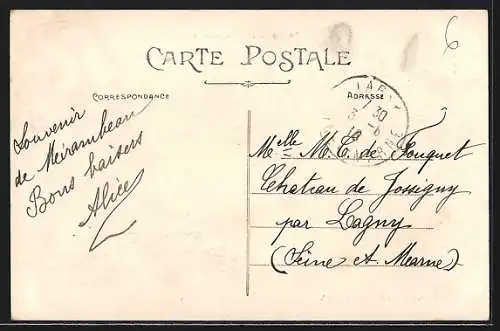 CARTE POSTALE
6
CORRESPONDANCE
ADRESSE
Souvenir
de Meirambeau
Bons baisers
Alice
LAGNY
MARNE
Melle M. C. de Fouquet
Chateau de Jossigny
par Lagny
(Seine et Marne)